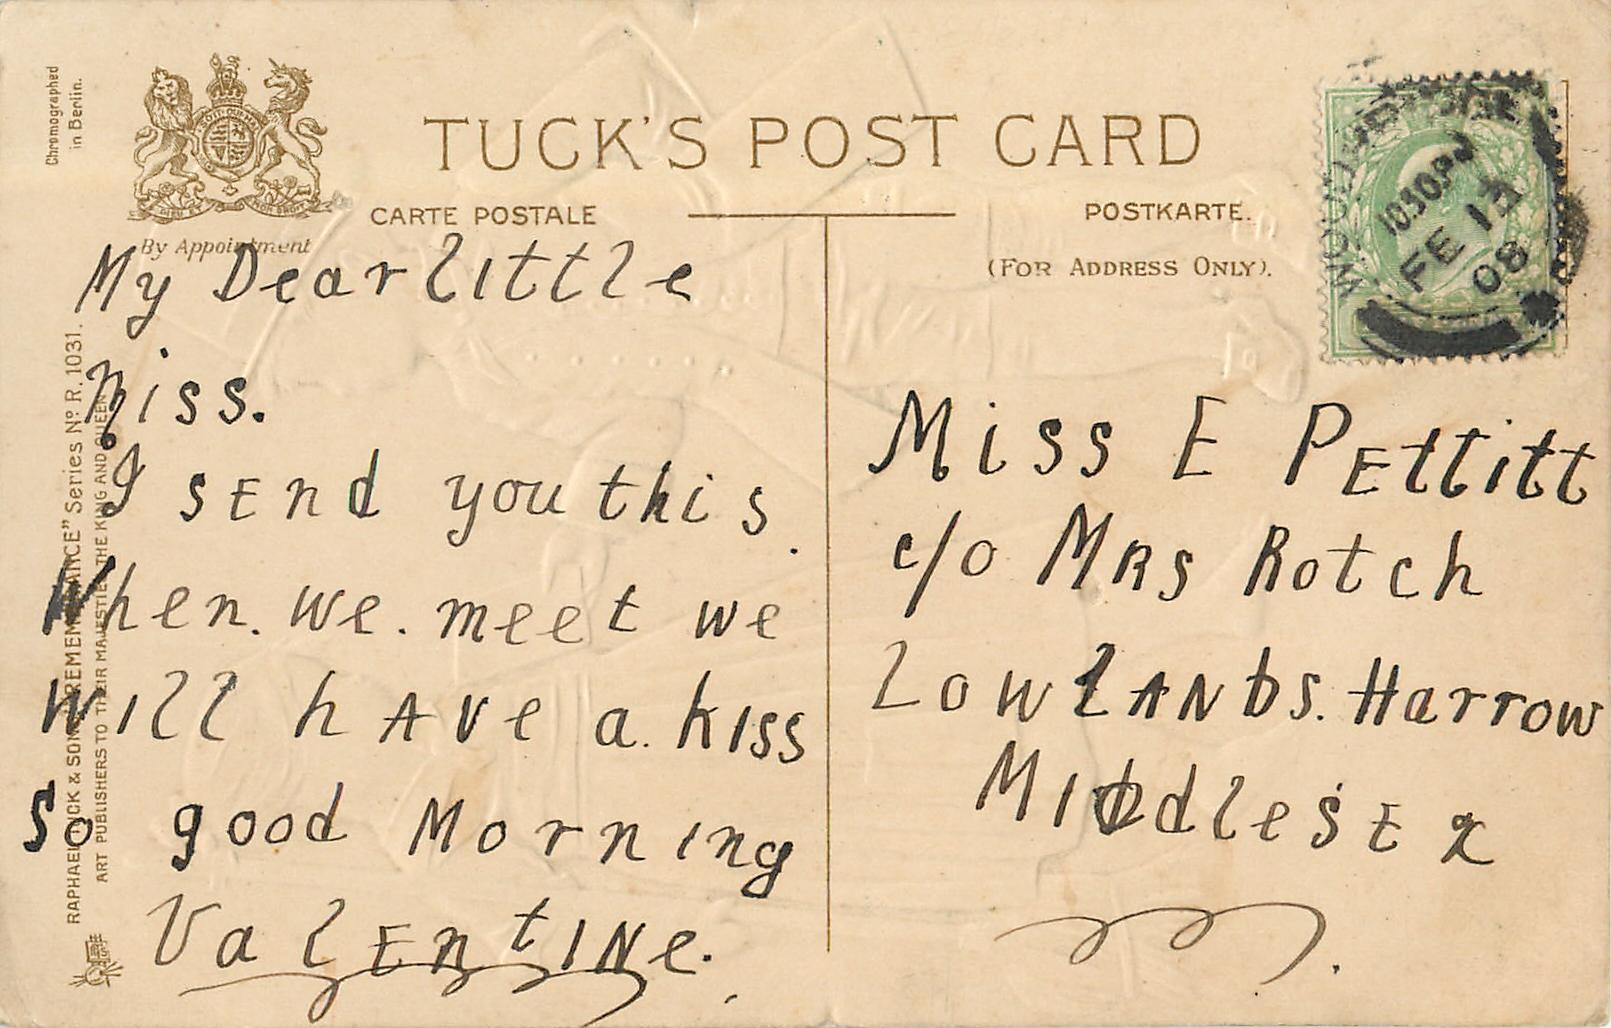 Chromographed
in Berlin.
DIEU ET MON DROIT
By Appointment
TUCK'S POST CARD
CARTE POSTALE
POSTKARTE.
(FOR ADDRESS ONLY).
10.30PM
FE 13
08
RAPHAEL TUCK & SONS' "REMEMBRANCE" Series Nº R. 1031.
ART PUBLISHERS TO THEIR MAJESTIES THE KING AND QUEEN
My Dear little
Miss.
I sEnd you this.
When. we. meet we
Will hAVe a. kiss
So good Morning
ValEntINe.
Miss E PEttitt
c/o MRs Rotch
LowlANds. Harrow
MIddlesEx